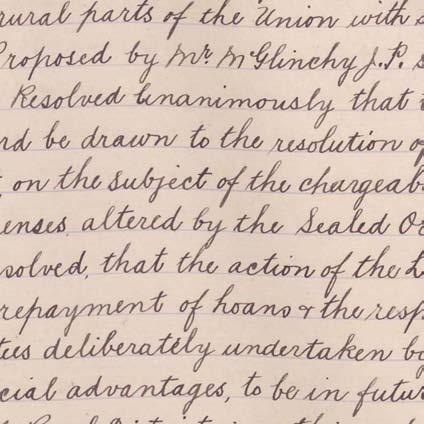 rural parts of the Union with
Proposed by Mr. McGlinchy J.P. s
Resolved Unanimously that
rd be drawn to the resolution of
on the subject of the chargeab
enses, altered by the Sealed Or
solved, that the action of the L
repayment of hoans & the resp
ties deliberately undertaken by
cial advantages, to be in futur